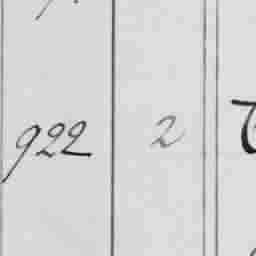 922 2